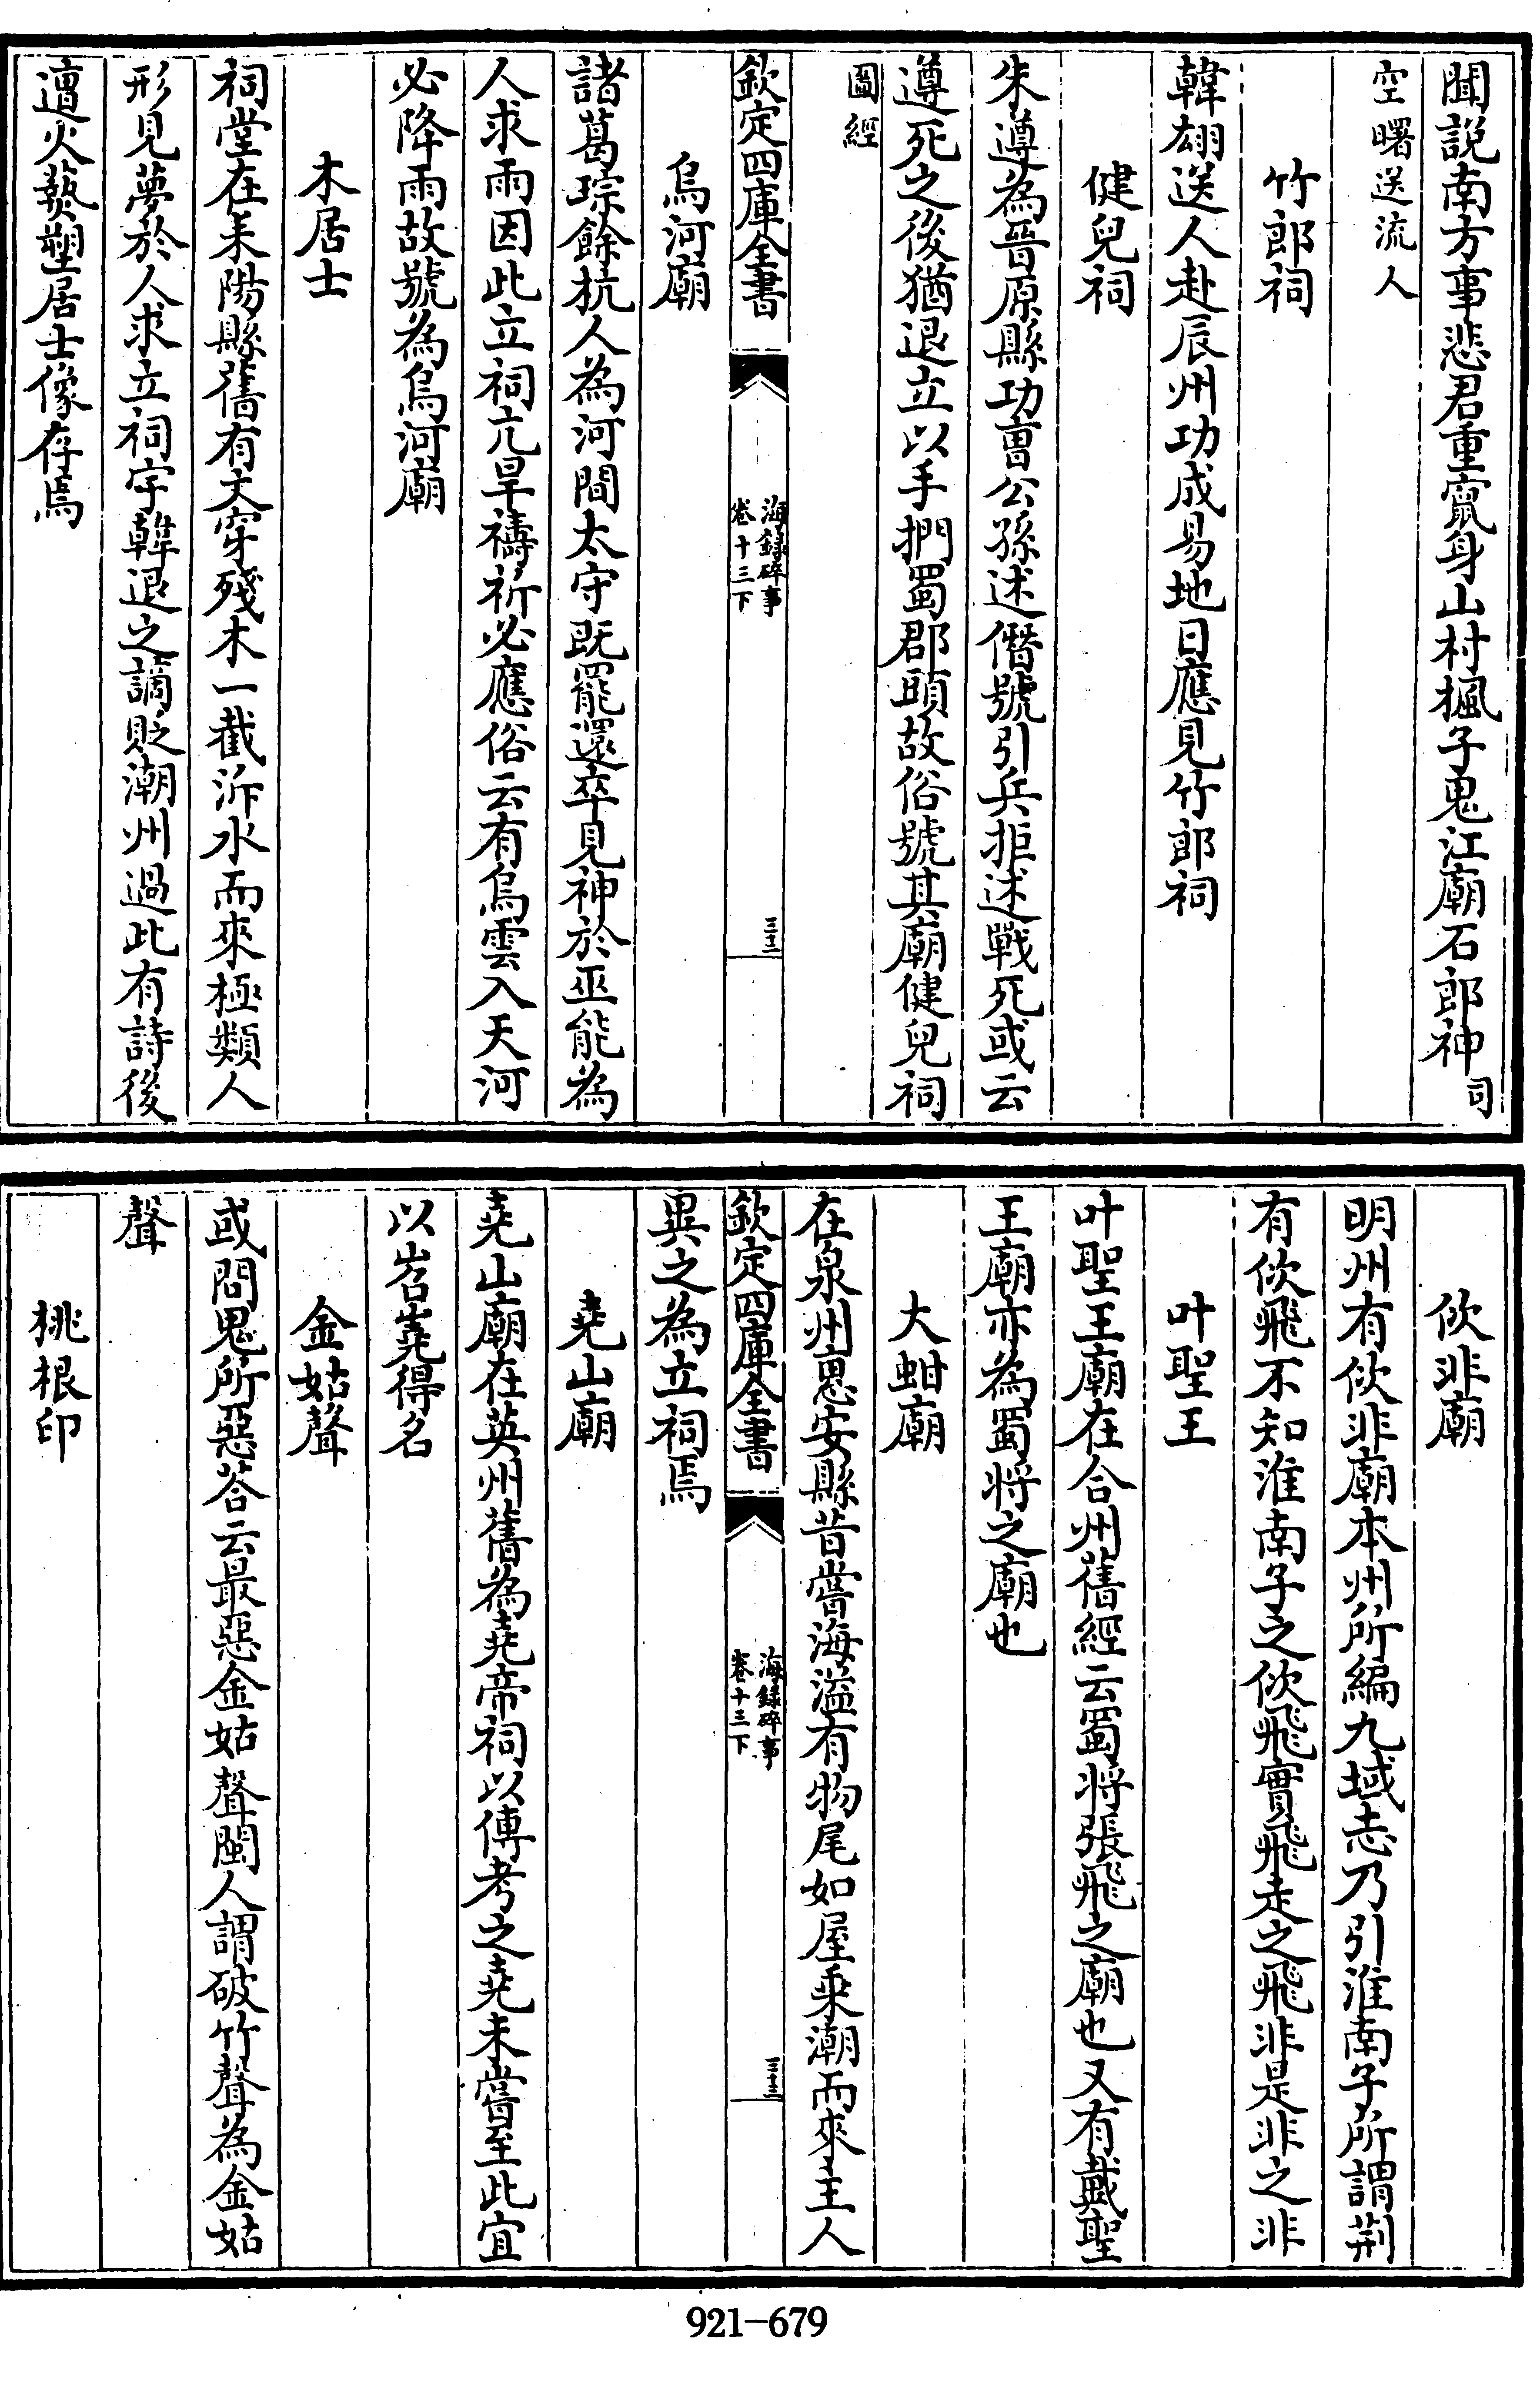 聞説南方事悲君重竄身山村楓子鬼江廟石郎神司
空曙送流人
竹郎祠
韓翃送人赴辰州功成易地日應見竹郎祠
健兒祠
朱遵為晉原縣功曹公孫述僭號引兵拒述戰死或云
遵死之後猶退立以手捫蜀郡頭故俗號其廟健兒祠
圖經
欽定四庫全書
海録碎事
卷十三下
三十二
烏河廟
諸葛琮餘杭人為河間太守既罷還卒見神於巫能為
人求雨因此立祠亢旱禱祈必應俗云有烏雲入天河
必降雨故號為烏河廟
木居士
祠堂在耒陽縣舊有天穿殘木一截泝水而來極類人
形見夢於人求立祠宇韓退之謫貶潮州過此有詩後
遭火爇塑居士像存焉
佽非廟
明州有佽非廟本州所編九域志乃引淮南子所謂荆
有佽飛不知淮南子之佽飛實飛走之飛非是非之非
叶聖王
叶聖王廟在合州舊經云蜀將張飛之廟也又有戴聖
王廟亦為蜀將之廟也
大蚶廟
在泉州惠安縣昔嘗海溢有物尾如屋乘潮而來主人
欽定四庫全書
海録碎事
卷十三下
三十三
異之為立祠焉
堯山廟
堯山廟在英州舊為堯帝祠以傳考之堯未嘗至此宜
以岧嶤得名
金姑聲
或問鬼所惡荅云最惡金姑聲閩人謂破竹聲為金姑
聲
桃根印
921-679